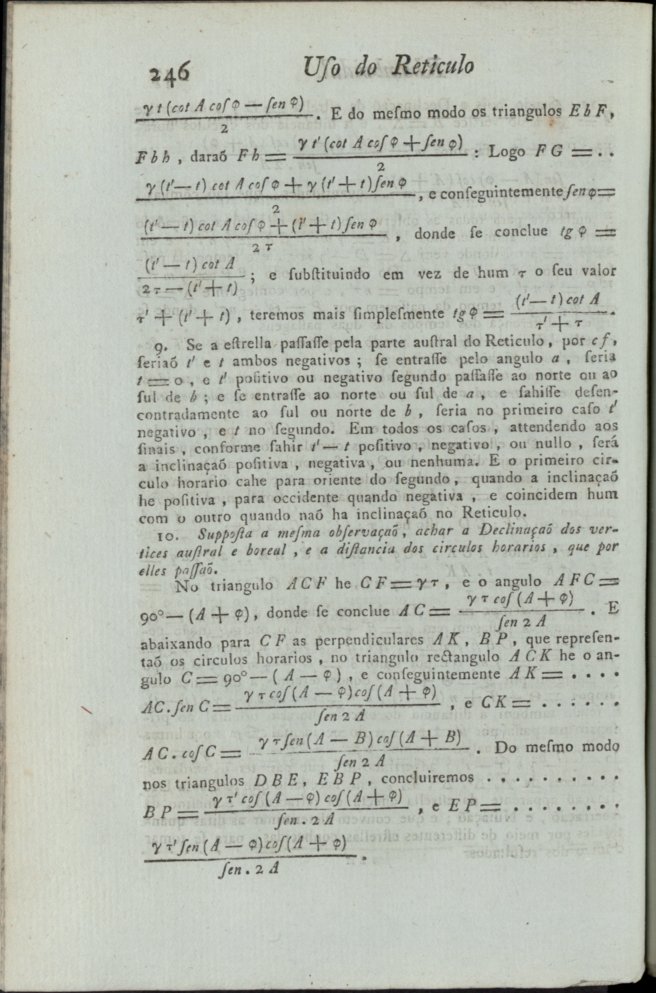 246 Uſo do Reticulo
γ t (cot A coſ φ — ſen φ) / 2 . E do meſmo modo os triangulos E b F,
F b h , daraõ F h = γ t' (cot A coſ φ + ſen φ) / 2 : Logo F G = . .
γ (t' — t) cot A coſ φ + γ (t' + t) ſen φ / 2 , e conſeguintemente ſen φ =
(t' — t) cot A coſ φ + (t' + t) ſen φ / 2 τ , donde ſe conclue tg φ =
(t' — t) cot A / 2 τ — (t' + t) ; e ſubſtituindo em vez de hum τ o ſeu valor
τ' + (t' + t) , teremos mais ſimpleſmente tg φ = (t' — t) cot A / τ' + τ .
9. Se a eſtrella paſſaſſe pela parte auſtral do Reticulo, por c f,
ſeriaõ t' e t ambos negativos ; ſe entraſſe pelo angulo a , ſeria
t = 0 , e t' poſitivo ou negativo ſegundo paſſaſſe ao norte ou ao
ſul de b ; e ſe entraſſe ao norte ou ſul de a , e ſahiſſe deſen-
contradamente ao ſul ou norte de b , ſeria no primeiro caſo t'
negativo , e t no ſegundo. Em todos os caſos , attendendo aos
ſinais , conforme ſahir t' — t poſitivo , negativo , ou nullo , ſerá
a inclinaçaõ poſitiva , negativa , ou nenhuma. E o primeiro cir-
culo horario cahe para oriente do ſegundo , quando a inclinaçaõ
he poſitiva , para occidente quando negativa , e coincidem hum
com o outro quando naõ ha inclinaçaõ no Reticulo.
10. Suppoſta a meſma obſervaçaõ , achar a Declinaçaõ dos ver-
tices auſtral e boreal , e a diſtancia dos circulos horarios , que por
elles paſſaõ.
No triangulo A C F he C F = γ τ , e o angulo A F C =
90° — (A + φ) , donde ſe conclue A C = γ τ coſ (A + φ) / ſen 2 A . E
abaixando para C F as perpendiculares A K , B P , que repreſen-
taõ os circulos horarios , no triangulo rectangulo A C K he o an-
gulo C = 90° — ( A — φ ) , e conſeguintemente A K = . . . .
A C . ſen C = γ τ coſ (A — φ) coſ (A + φ) / ſen 2 A , e C K = . . . . . .
A C . coſ C = γ τ ſen (A — B) coſ (A + B) / ſen 2 A . Do meſmo modo
nos triangulos D B E , E B P , concluiremos . . . . . . . . . .
B P = γ τ' coſ (A — φ) coſ (A + φ) / ſen . 2 A , e E P = . . . . . . . .
γ τ' ſen (A — φ) coſ (A + φ) / ſen . 2 A .